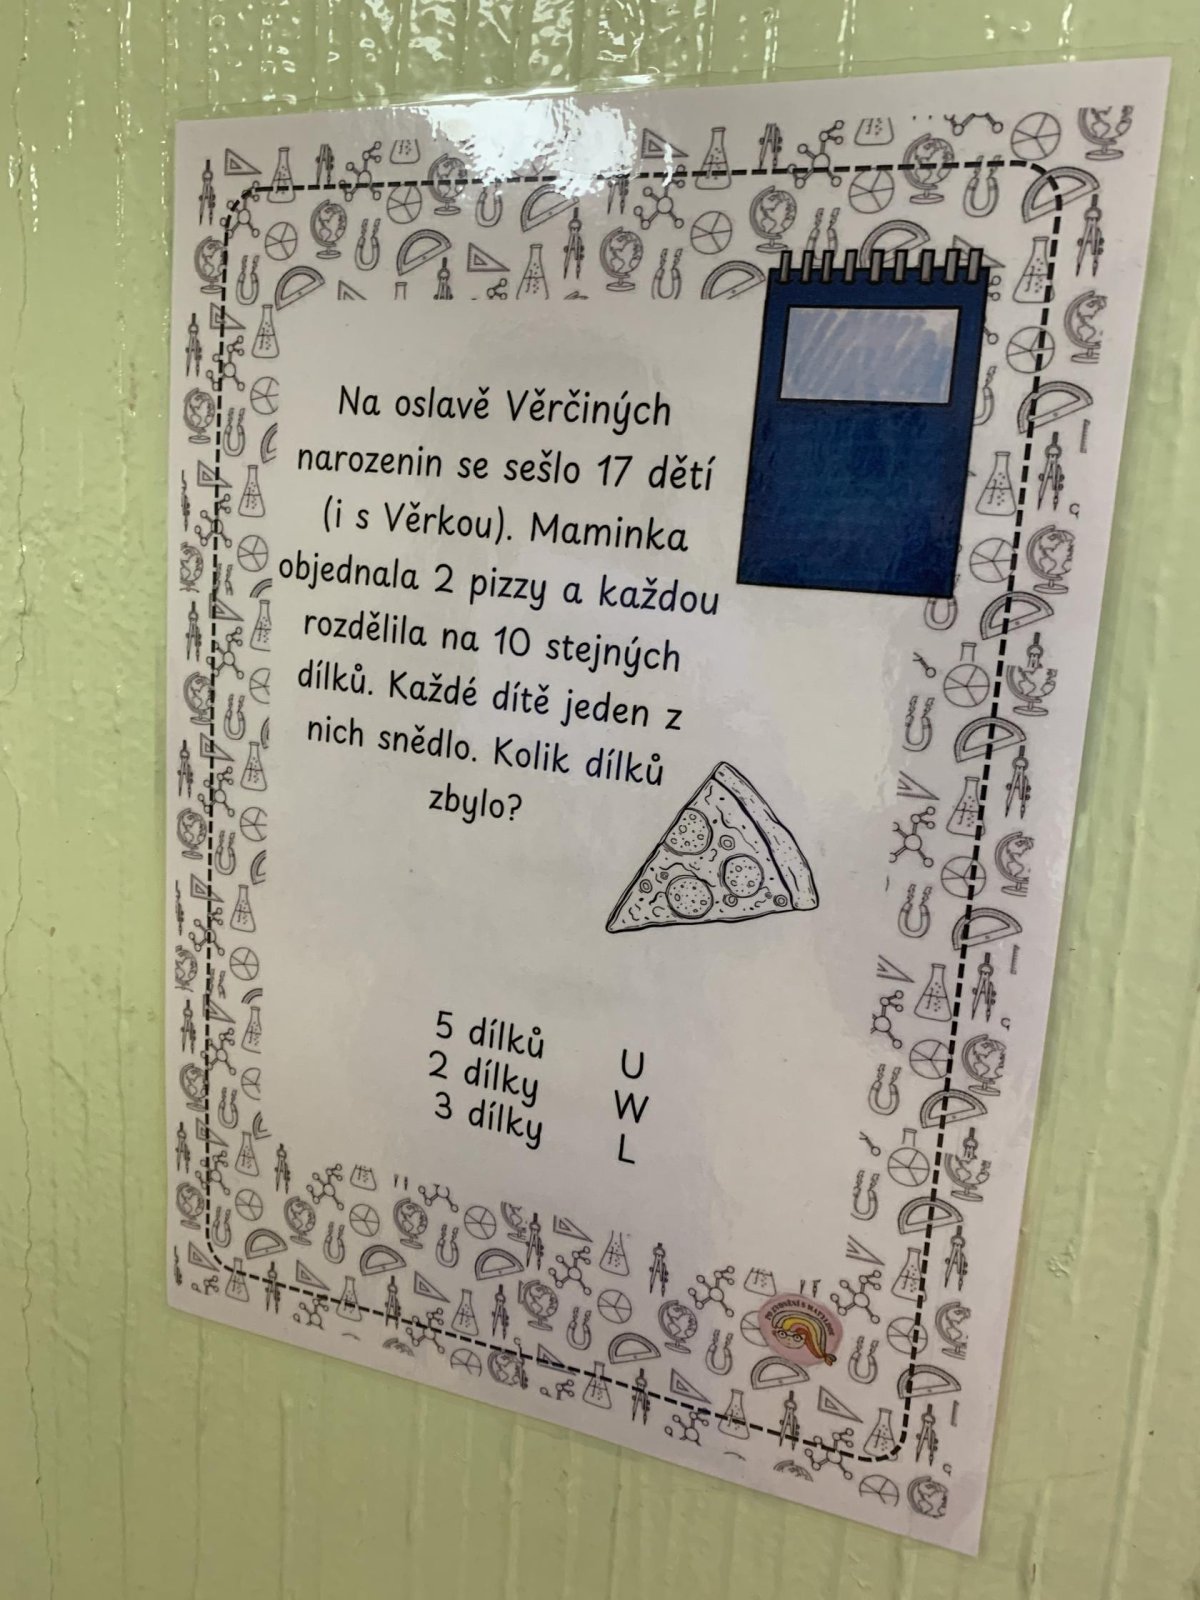 Na oslavě Věrčiných
narozenin se sešlo 17 dětí
(i s Věrkou). Maminka
objednala 2 pizzy a každou
rozdělila na 10 stejných
dílků. Každé dítě jeden z
nich snědlo. Kolik dílků
zbylo?
5 dílků U
2 dílky W
3 dílky L